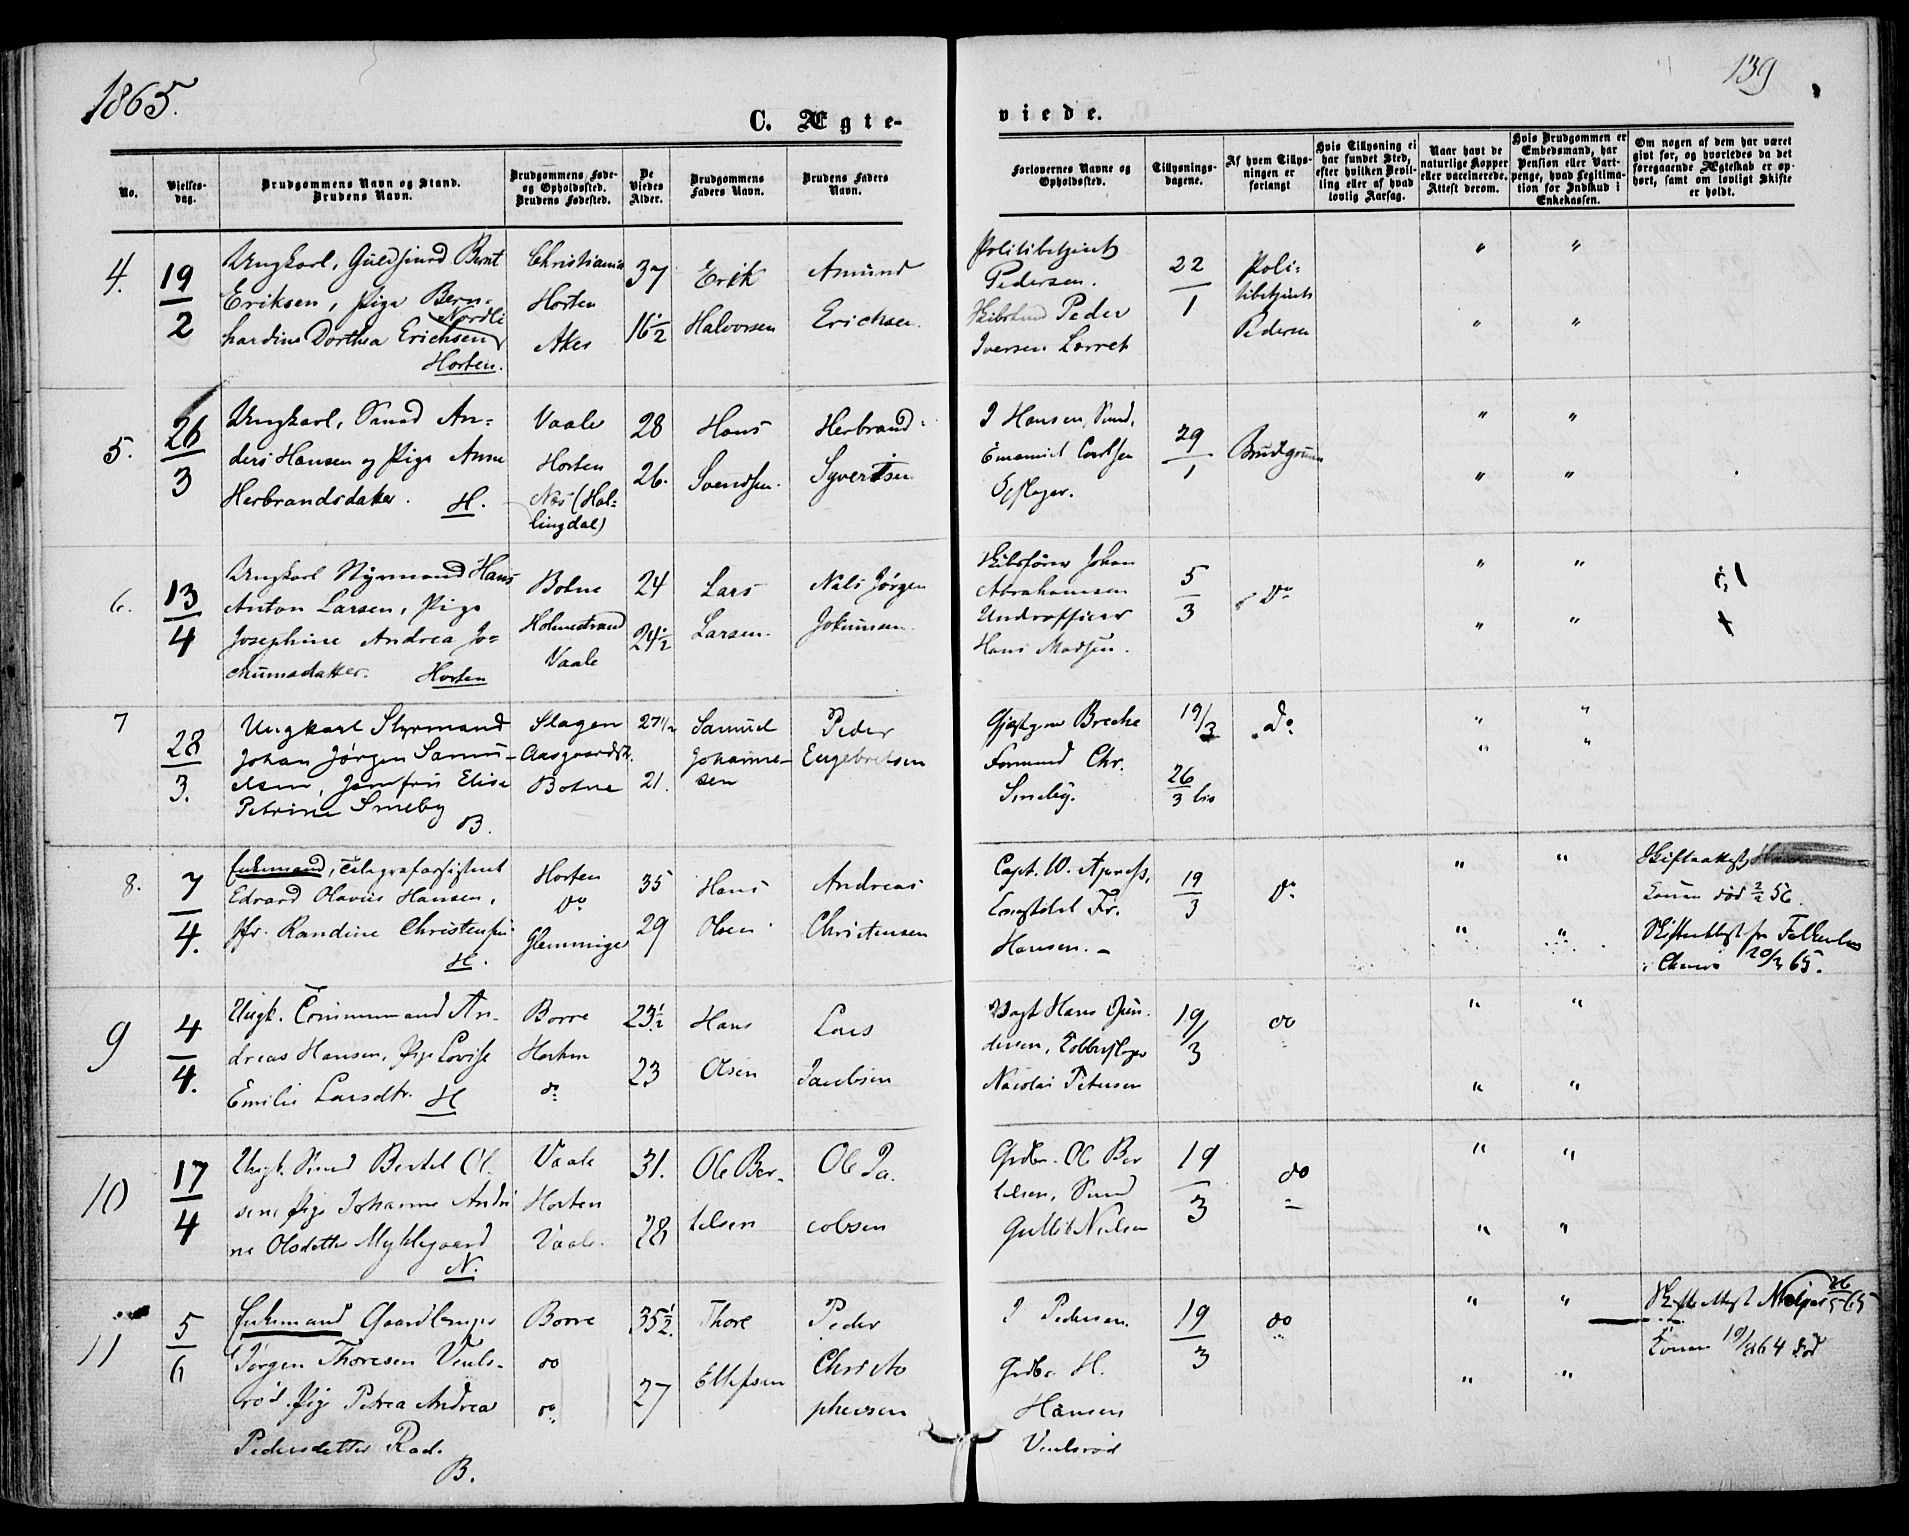 1865.
139
C. Ægte-
viede.
No.
Vielses-
dag.
Brudgommens Navn og Stand.
Brudens Navn.
Brudgommens Føde-
og Opholdssted.
Brudens Fødested.
De
Viedes
Alder.
Brudgommens
Faders Navn.
Brudens Faders
Navn.
Forlovernes Navne og
Opholdssted.
Tillysnings-
dagene.
Af hvem Tillys-
ningen er
forlangt
Hvis Tillysning ei
har fundet Sted,
efter hvilken Bevil-
ling eller af hvad
lovlig Aarsag.
Naar havt de
naturlige Kopper
eller vaccinerede.
Attest derom.
Hvis Brudgommen er
Embedsmand, har
Pension eller Vart-
penge, hvad Legitima-
tion for Indskud i
Enkekassen.
Om nogen af dem har været
givt før, og hvorledes da det
foregaaende Ægteskab er op-
hørt, samt om lovligt Skifte
er holdt.
4.
19/2
Ungkarl, Guldsmed Bernt
Eriksen, Pige Bern-
Nordli
hardine Dorthea Erichsen
Horten.
Christiania
Horten
Aker
37
16½
Erik
Halvorsen
Amund
Erichsen.
Politibetjent
Pedersen.
Peder
Iversen
22/1
Poli-
tibetjent
Pedersen
" "
" "
5.
26/3
Ungkarl, Smed An-
ders Hansen og Pige Anne
Herbrandsdatter. H.
Vaale
Horten
Næs (Hal-
lingdal)
28
26.
Hans
Svendsen.
Herbrand
Syvertsen
J Hansen, Smed,
Emanuel
29/1
Brudgommen
" "
" "
6.
13/4
Ungkarl Styrmand Hans
Anton Larsen, Pige
Josephine Andrea Jo-
chumsdatter. Horten
Botne
Holmestrand
Vaale
24
24½
Lars
Larsen.
Nils Jørgen
Jokumsen
Skibsfører Johan
Abrahamsen
Underofficer
Hans Madsen.
5/3
Do
" "
" "
7
28/3.
Ungkarl Styrmand
Johan Jørgen Samu-
elsen, Jomfru Elise
Petrine Smeby
B.
Slagen
Aasgaardstr.
Botne
27½
21.
Samuel
Johanne-
sen
Peder
Engebretsen
Gjæstgiver Breche
Formand Chr.
Smeby.
19/3
26/3 bis
do
" "
" "
8.
7/4.
Enkemand, Telegrafassistent
Edvard Olavus Hansen,
Jfr. Randine Christensen
H.
Horten
Do
Glemminge
35
29
Hans
Olsen
Andreas
Christensen
Capt. W.
Fr.
Hansen. –
19/3
Do
" "
" "
Skifteattest
Konen død 2/2 56.
Skifteattest fr
i 20/3 65.
9
4/4.
Ungk. Tømmermand An-
dreas Hansen, Pige Lovise
Emilie Larsdtr. H
Borre
Horten
do
23½
23
Hans
Olsen
Lars
Jacobsen
Vagt Hans Gun-
dersen, Kobberslager
Nicolai Petersen
19/3
do
" "
" "
10
17/4
Ungk. Smed Bertel Ol-
sen Pige Johanne Andri
ne Olsdatter Myklegaard
N.
Vaale
Horten
Vaale.
31.
28
Ole Ber-
telsen
Ole Ja-
cobsen
Grdbr. Ole Ber
telsen, Smed
Gullik Nielsen
19/3
do
" "
" "
11
5/6
Enkemand Gaardbruger
Jørgen Thoresen Veuls-
rød. Pige Petrea Andrea
Pedersdatter Rød.
B.
Borre
do
do
35½.
27
Thore
Ellefsen
Peder
Christo
phersen
J Pedersen
Grdbr H.
Hansen
19/3
do
" "
" "
Skifte Attest 26/5 65
Konen 64 død